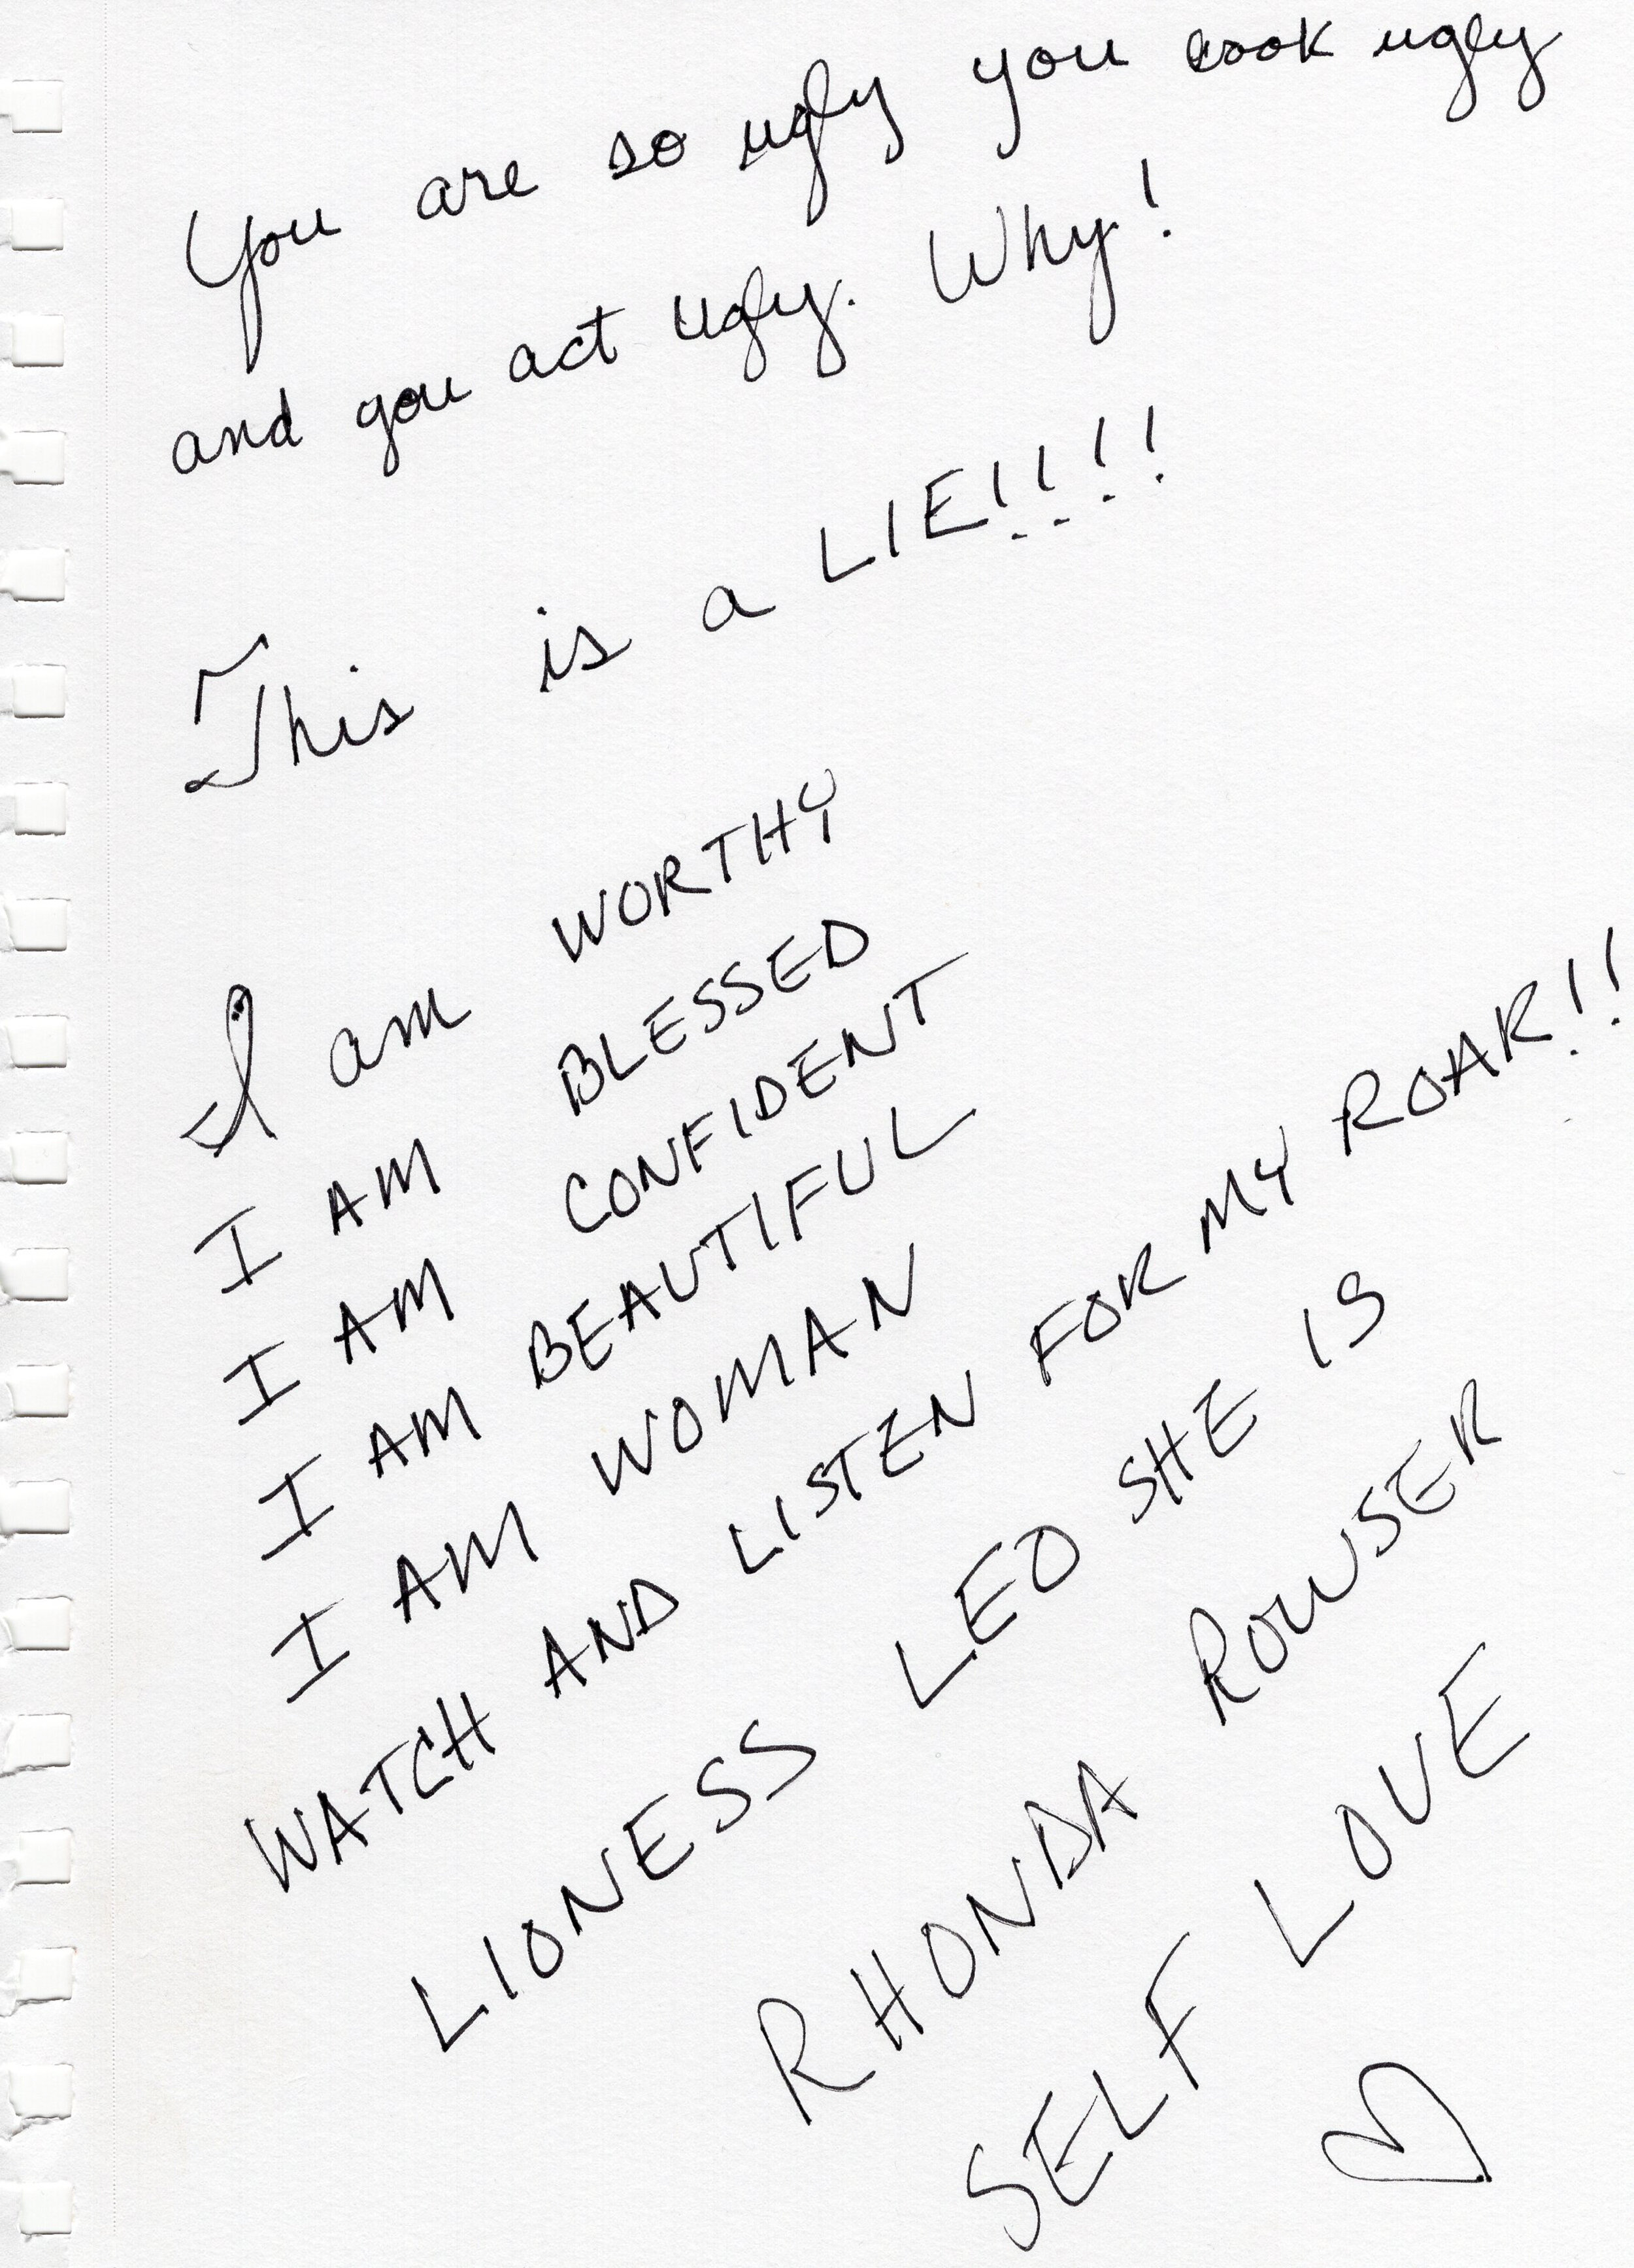 You are so ugly you look ugly
and you act ugly. Why!
This is a LIE!!!!
I am WORTHY
I AM BLESSED
I AM CONFIDENT
I AM BEAUTIFUL
I AM WOMAN
WATCH AND LISTEN FOR MY ROAR!!
LIONESS LEO SHE IS
RHONDA ROWSER
SELF LOVE